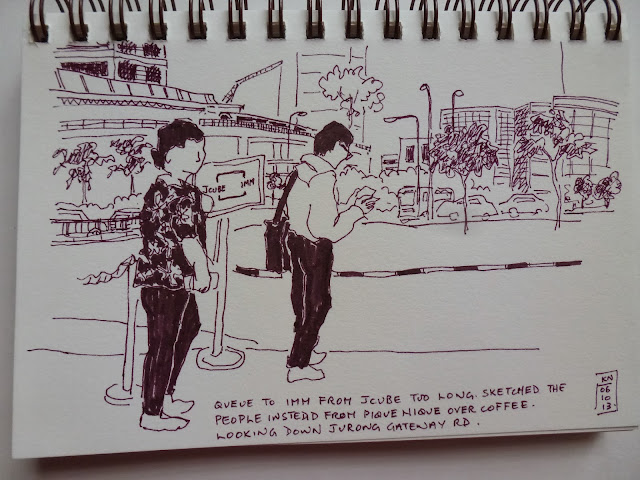 JCUBE IMM
QUEUE TO IMM FROM JCUBE TUO LONG. SKETCHED THE
PEOPLE INSTEAD FROM PIQUE NIQUE OVER COFFEE.
LOOKING DOWN JURONG GATEWAY RD.
KN
06
10
13